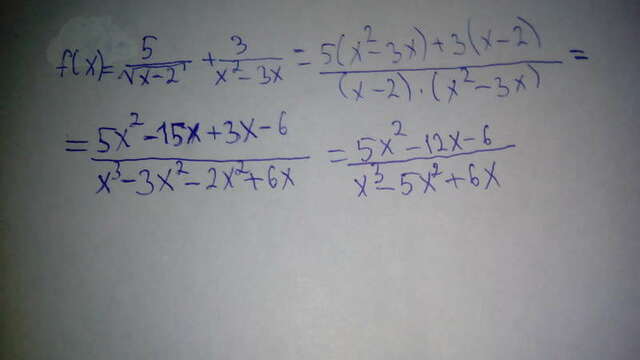 f(x)= 5/√(x-2) + 3/(x²-3x) = (5(x²-3x)+3(x-2))/((x-2)·(x²-3x)) =
= (5x²-15x+3x-6)/(x³-3x²-2x²+6x) = (5x²-12x-6)/(x³-5x²+6x)